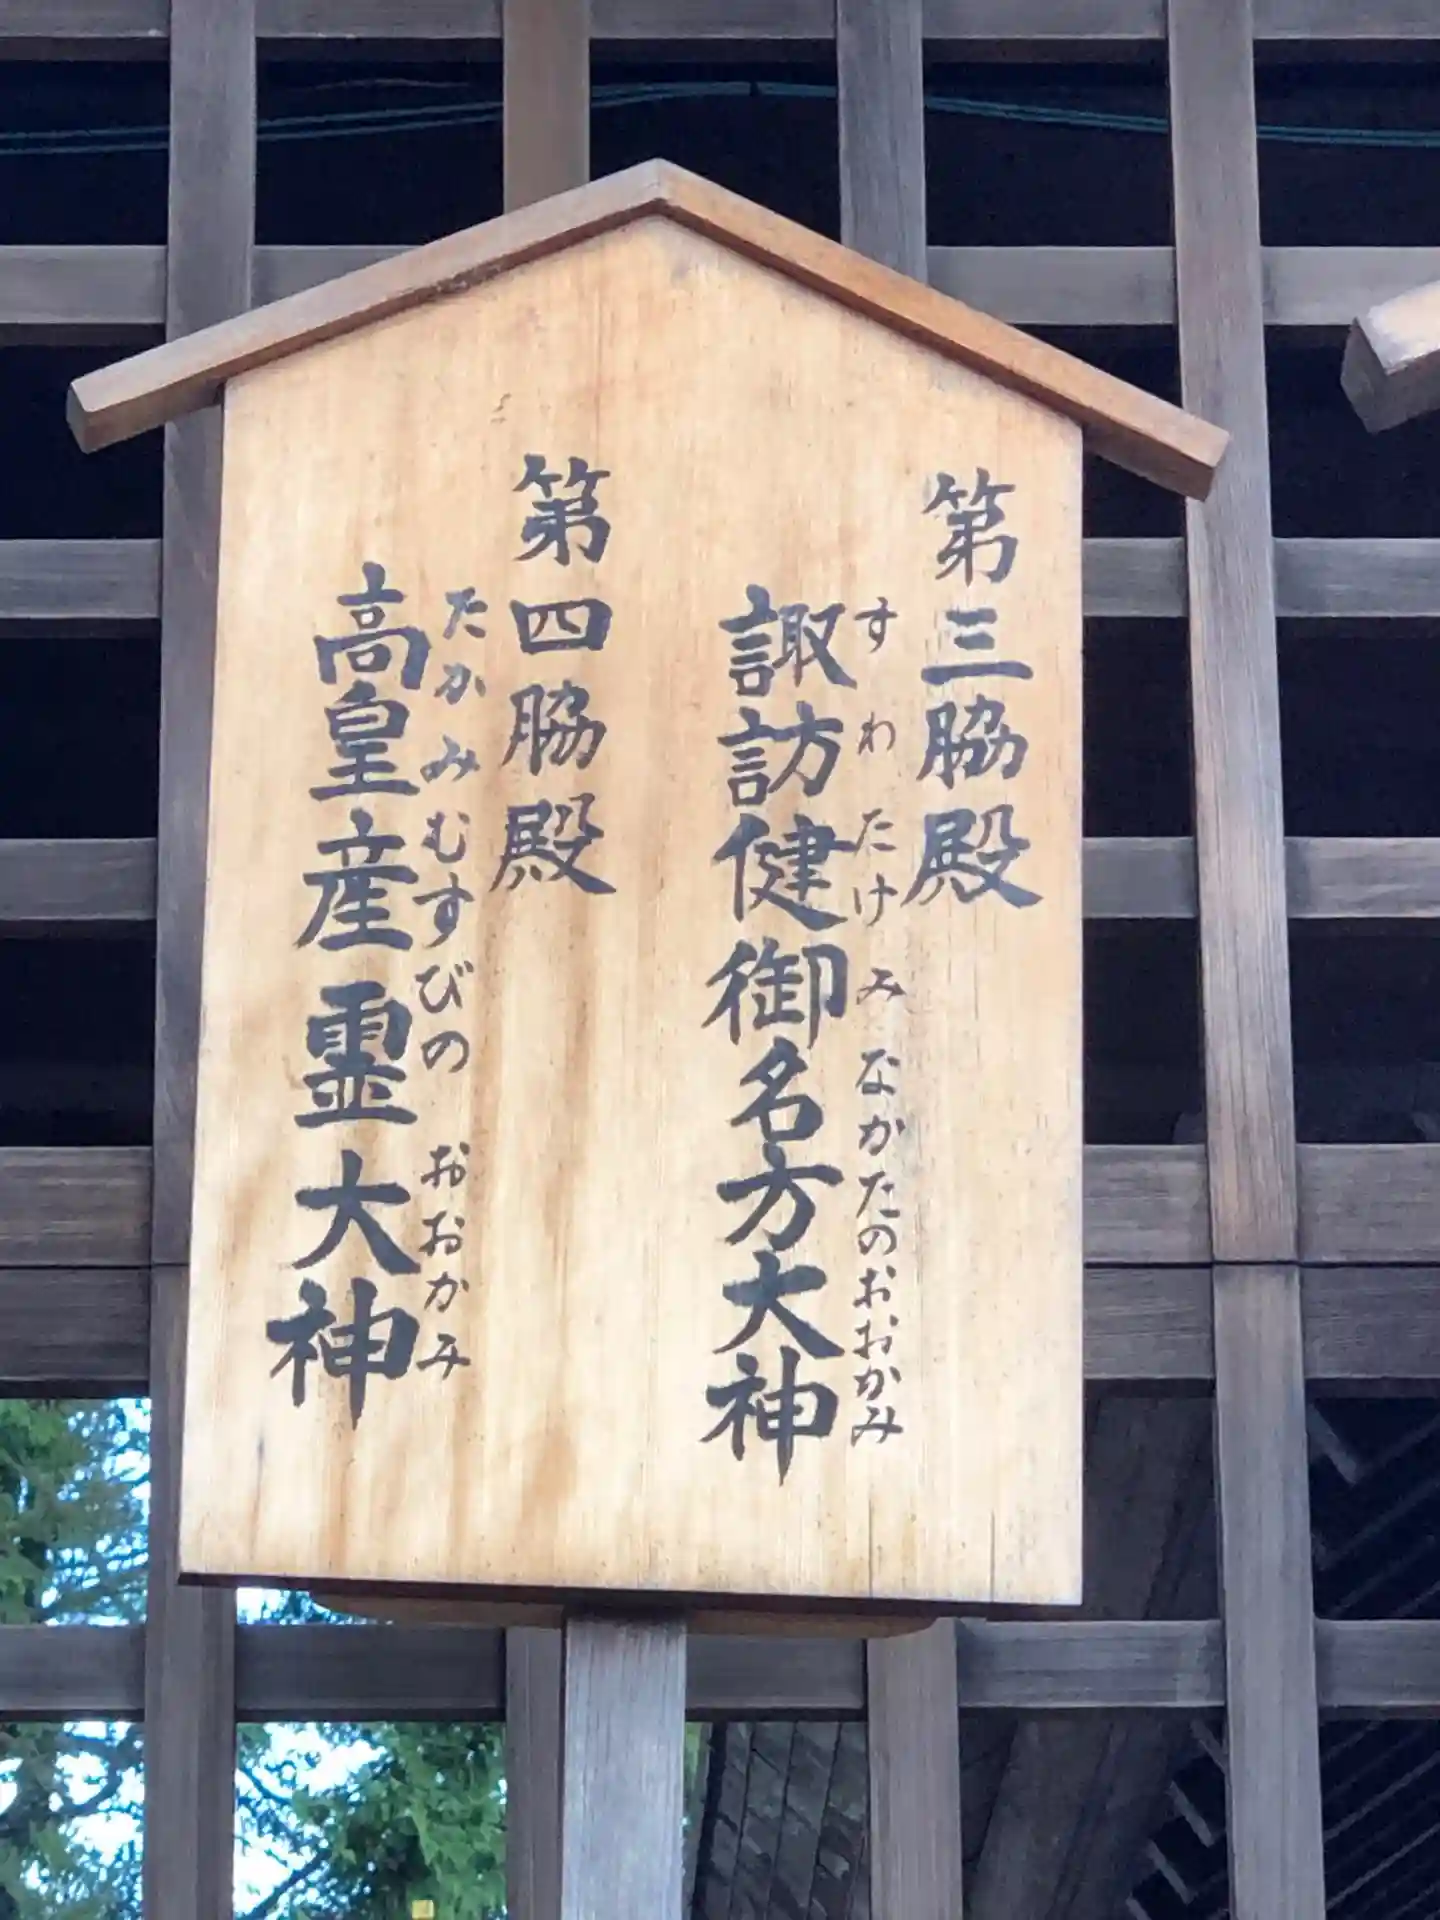 第三脇殿
すわたけみなかたのおおかみ
諏訪健御名方大神
第四脇殿
たかみむすびのおおかみ
高皇産霊大神